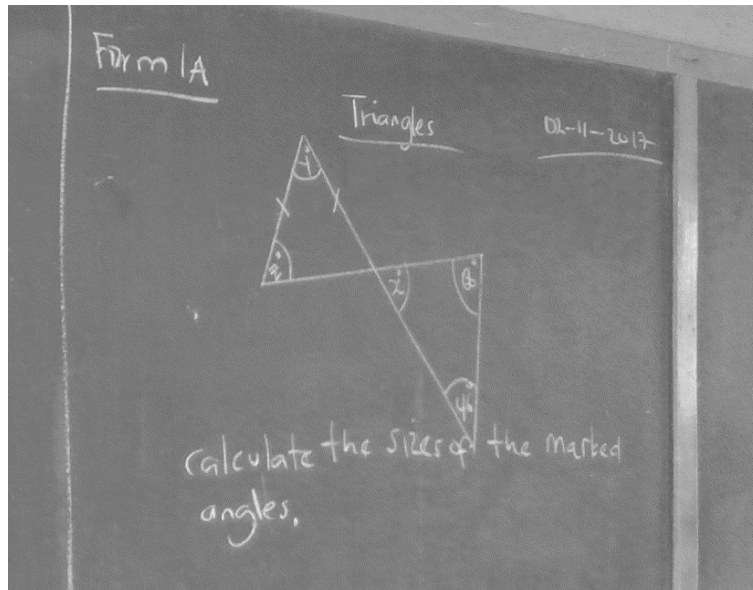 Form 1A
Triangles
02-11-2017
y°
x°
46°
calculate the sizes of the marked
angles.